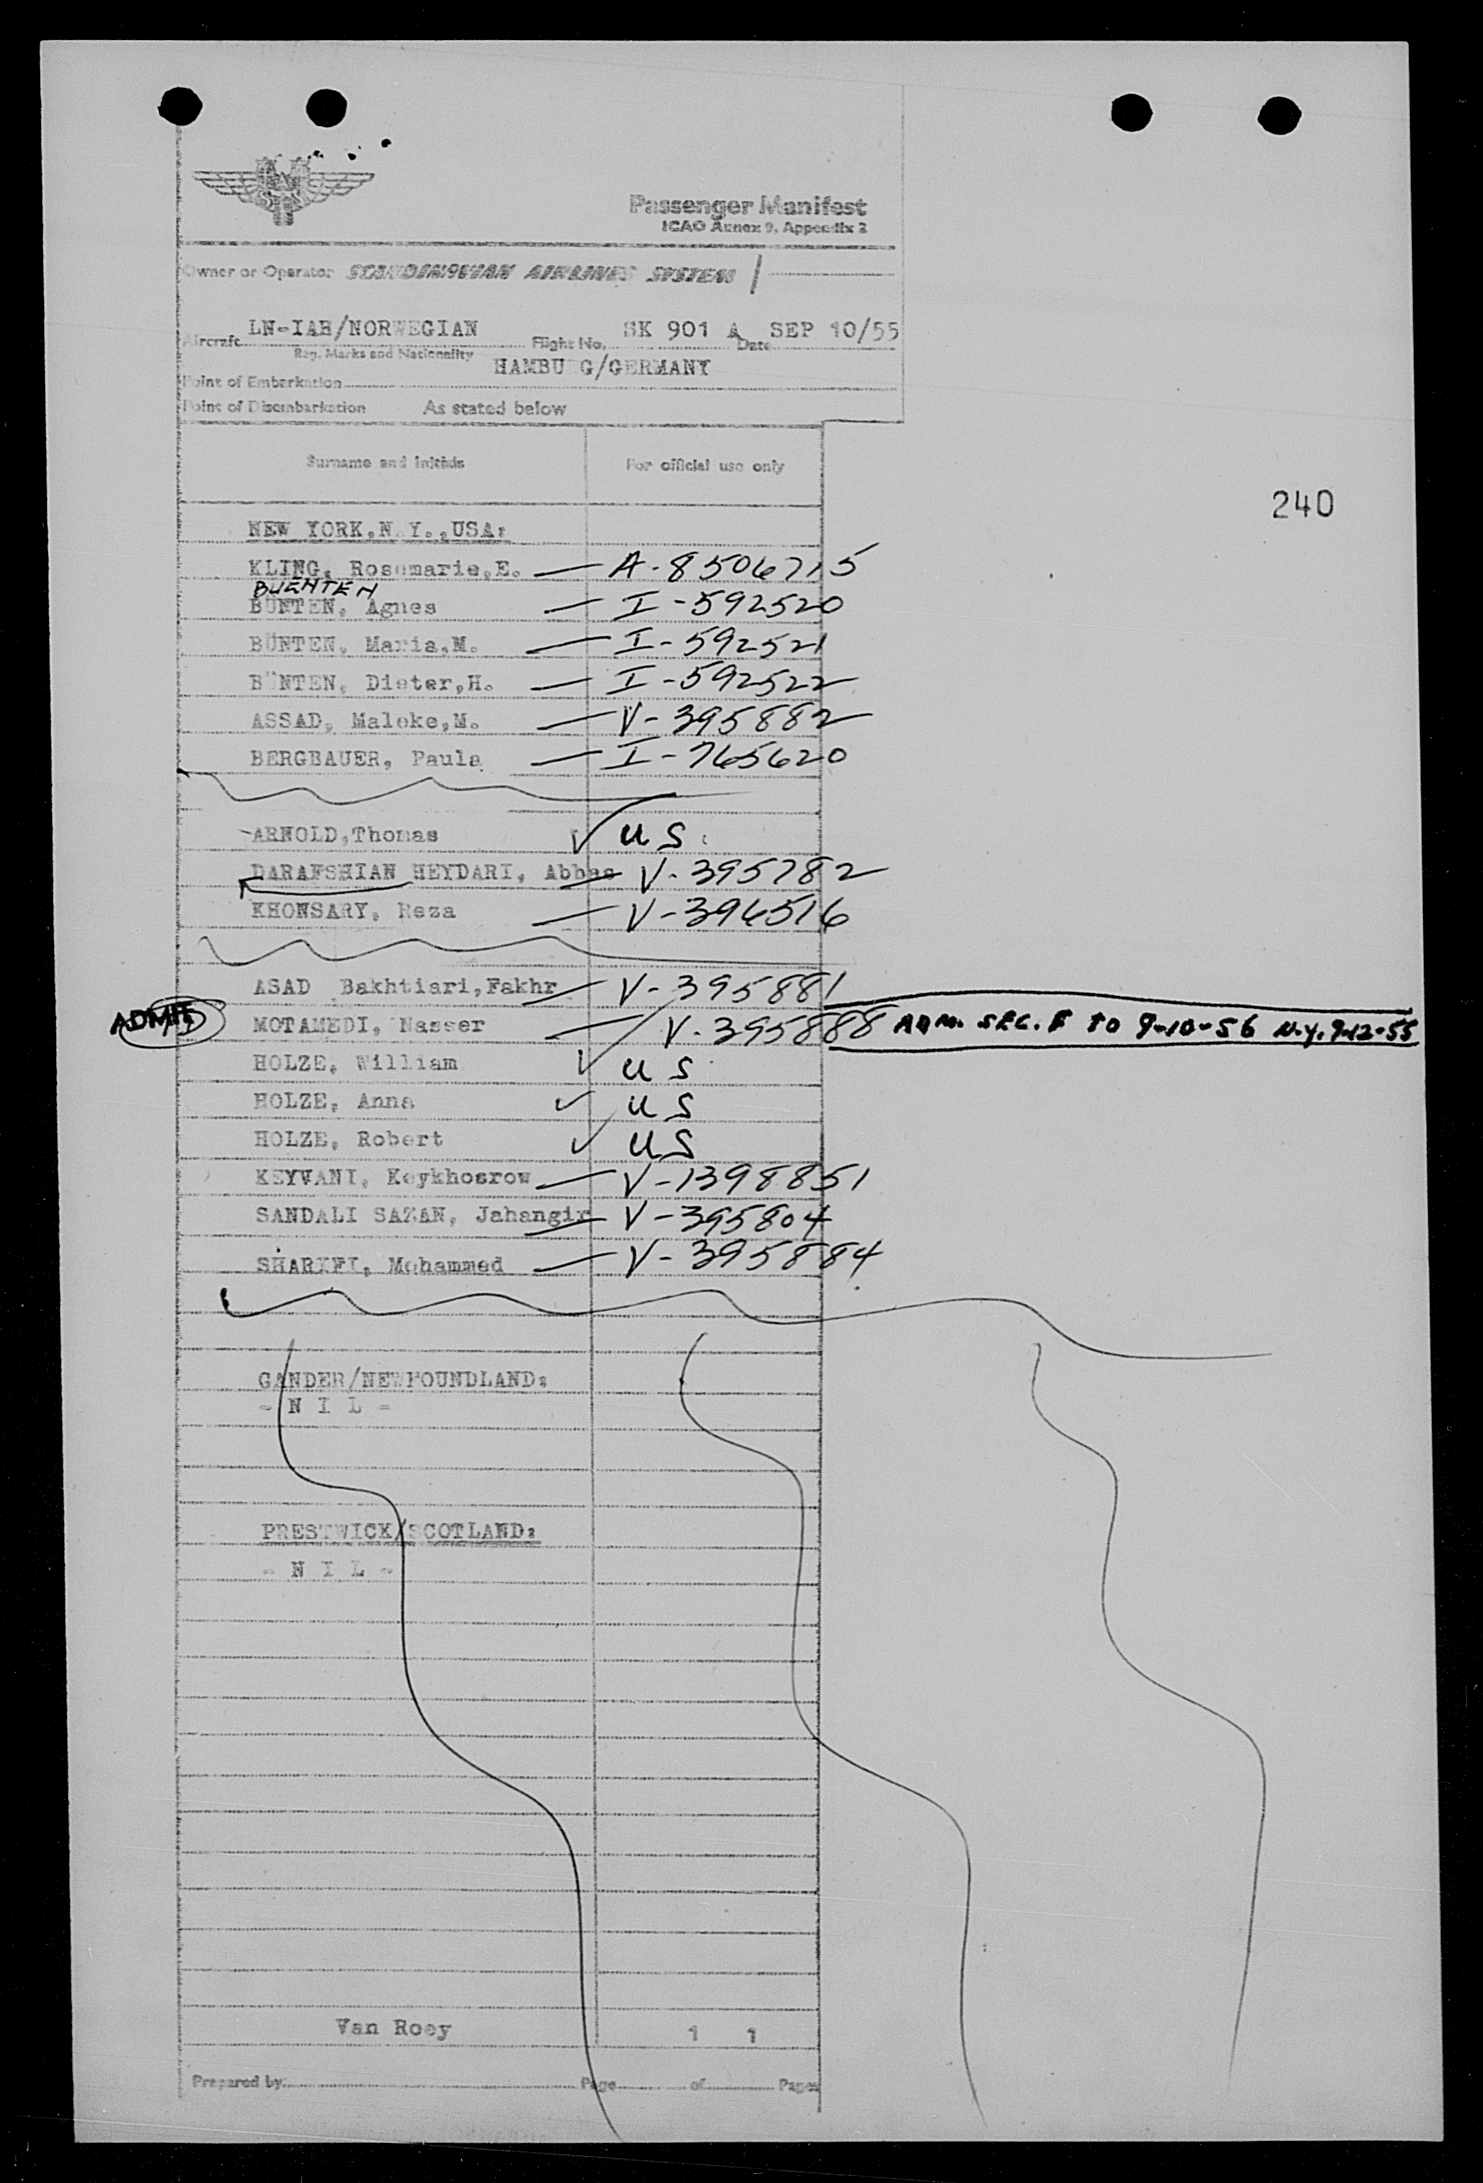 Passenger Manifest
ICAO Annex 9, Appendix 2
Owner or Operator SCANDINAVIAN AIRLINES SYSTEM
LN-IAH/NORWEGIAN SK 901 A SEP 10/55
Aircraft Flight No. Date
Reg. Marks and Nationality
HAMBURG/GERMANY
Point of Embarkation
Point of Disembarkation As stated below
Surname and initials For official use only
240
NEW YORK, N.Y., USA:
KLING, Rosemarie, E. — A-8506715
BUENTEN
BÜNTEN, Agnes — I-592520
BÜNTEN, Maria, M. — I-592521
BÜNTEN, Dieter, H. — I-592522
ASSAD, Maleke, M. — V-395882
BERGBAUER, Paula — I-765620
ARNOLD, Thomas ✓ US
DARAFSHIAN HEYDARI, Abbas — V-395782
KHONSARY, Reza — V-396516
ASAD Bakhtiari, Fakhr — V-395881
ADMIT MOTAMEDI, Nasser — V-395888 ADM. SEC. F TO 9-10-56 N.Y. 9-12-55
HOLZE, William ✓ US
HOLZE, Anna ✓ US
HOLZE, Robert ✓ US
KEYVANI, Keykhosrow — V-1398851
SANDALI SAZAN, Jahangir — V-395804
SHARIFI, Mohammed — V-395884
GANDER/NEWFOUNDLAND:
- N I L -
PRESTWICK/SCOTLAND:
- N I L -
Van Roey 1 1
Prepared by Page of Pages